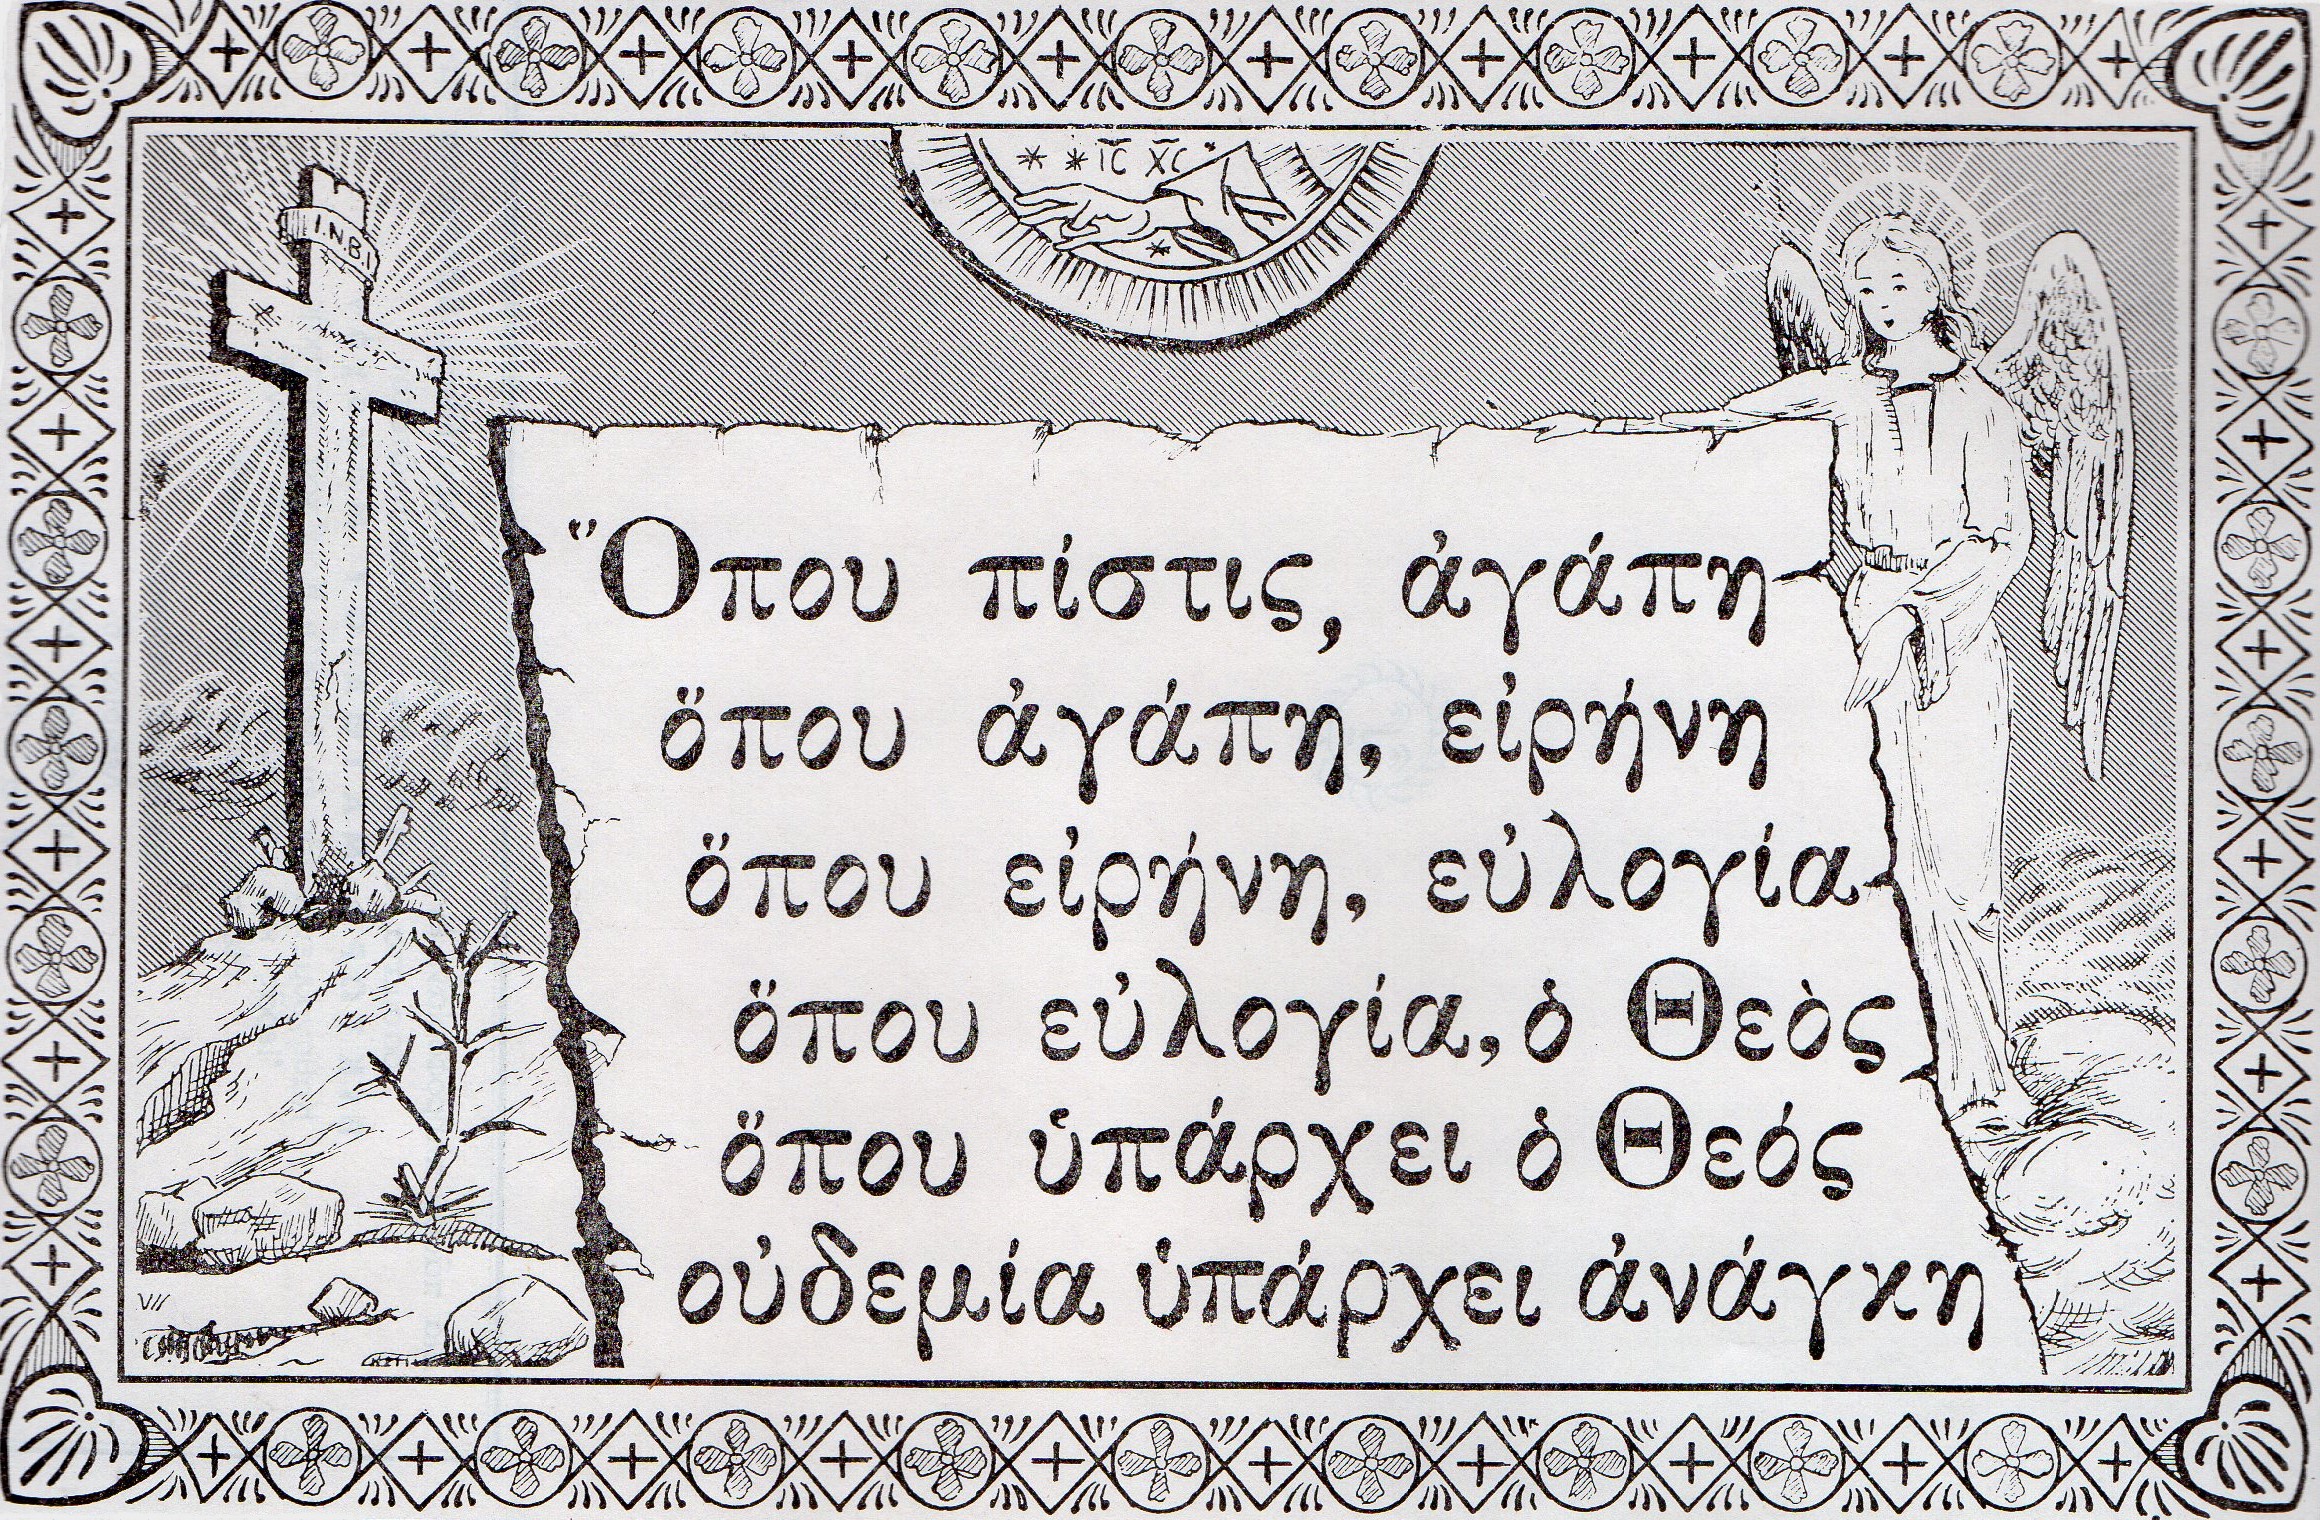 ΙC XC
I.N.B.I
Ὅπου πίστις, ἀγάπη
ὅπου ἀγάπη, εἰρήνη
ὅπου εἰρήνη, εὐλογία
ὅπου εὐλογία, ὁ Θεὸς
ὅπου ὑπάρχει ὁ Θεός
οὐδεμία ὑπάρχει ἀνάγκη